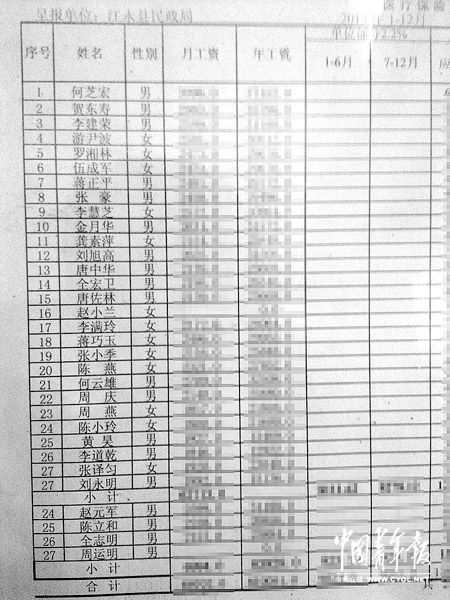 呈报单位：江永县民政局
医疗保险
1-12月
序号 姓名 性别 月工资 年工资 2.2%
1-6月 7-12月
1 何芝宏 男
2 贺东寿 男
3 李建荣 男
4 游尹波 女
5 罗湘林 女
6 伍成军 女
7 蒋正平 男
8 张豪 男
9 李慧芝 女
10 金月华 男
11 龚素萍 女
12 刘旭高 男
13 唐中华 男
14 全宏卫 男
15 唐佐林 男
16 赵小兰 女
17 李满玲 女
18 蒋巧玉 女
19 张小季 女
20 陈燕 女
21 何云雄 男
22 周庆 男
23 周燕 女
24 陈小玲 女
25 黄昊 男
26 李道乾 男
27 张译匀 女
27 刘永明 男
小计
24 赵元军 男
25 陈立和 男
26 全志明 男
27 周运明 男
小计
合计
中国青年报
WWW.CYOL.NET